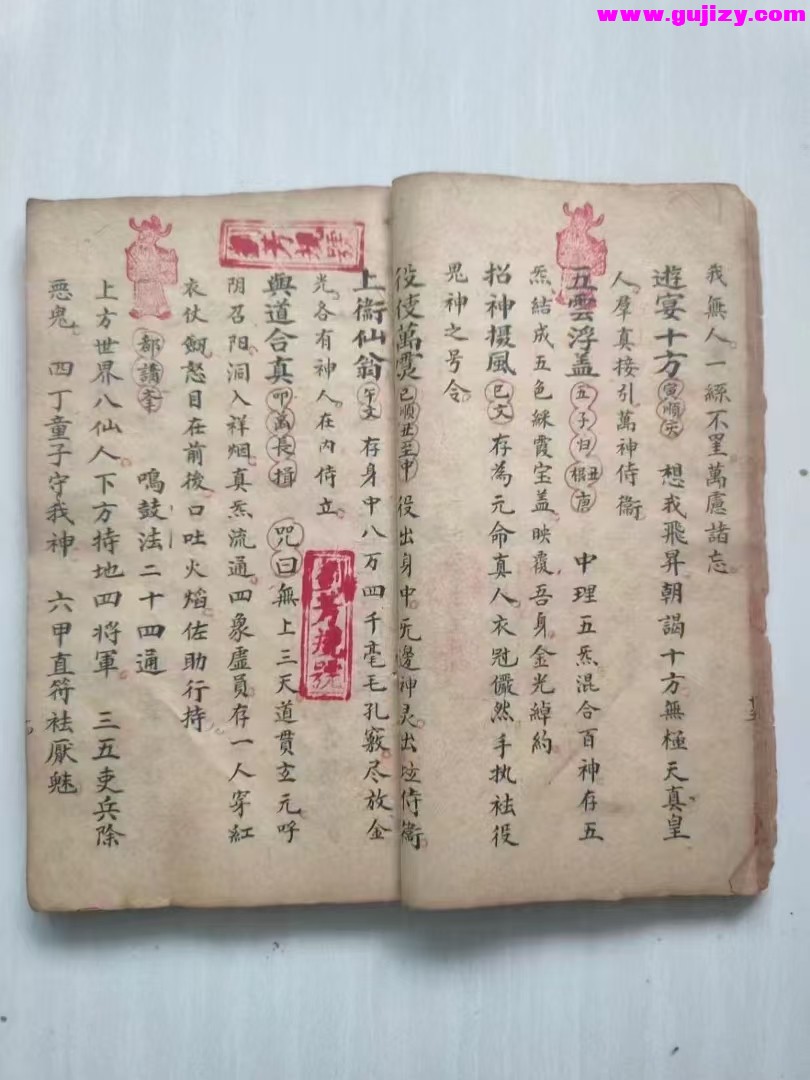 www.gujizy.com
我無人。一絲不罣萬慮諸忘。
遊宴十方 寅順天 想我飛昇朝謁十方無極天真皇
人。羣真接引萬神侍衛
五雲浮盖 五子归根丑庚 中理五炁混合百神存五
炁結成五色綵霞宝盖。映覆吾身。金光綽約
招神摄風 巳文 存為元命真人。衣冠儼然。手执袪役
鬼神之号令。
役使萬灵 已順丑至申 役出身中。无邊神灵。出竝侍衛。
上衞仙翁 午文 存身中八万四千毫毛孔竅。尽放金
光。各有神人。在内侍立。
與道合真 叩萬長揖 咒曰 無上三天道贯玄元呼
阴召阳。洞入祥烟。真炁流通。四象虚員存一人穿紅
衣仗劔怒目在前後口吐火熖佐助行持。
都講奉 鳴鼓法二十四通
上方世界八仙人。下方持地四将軍 三五吏兵除
惡鬼。 四丁童子守我神 六甲直符袪厭魅
芳規號
芳規號